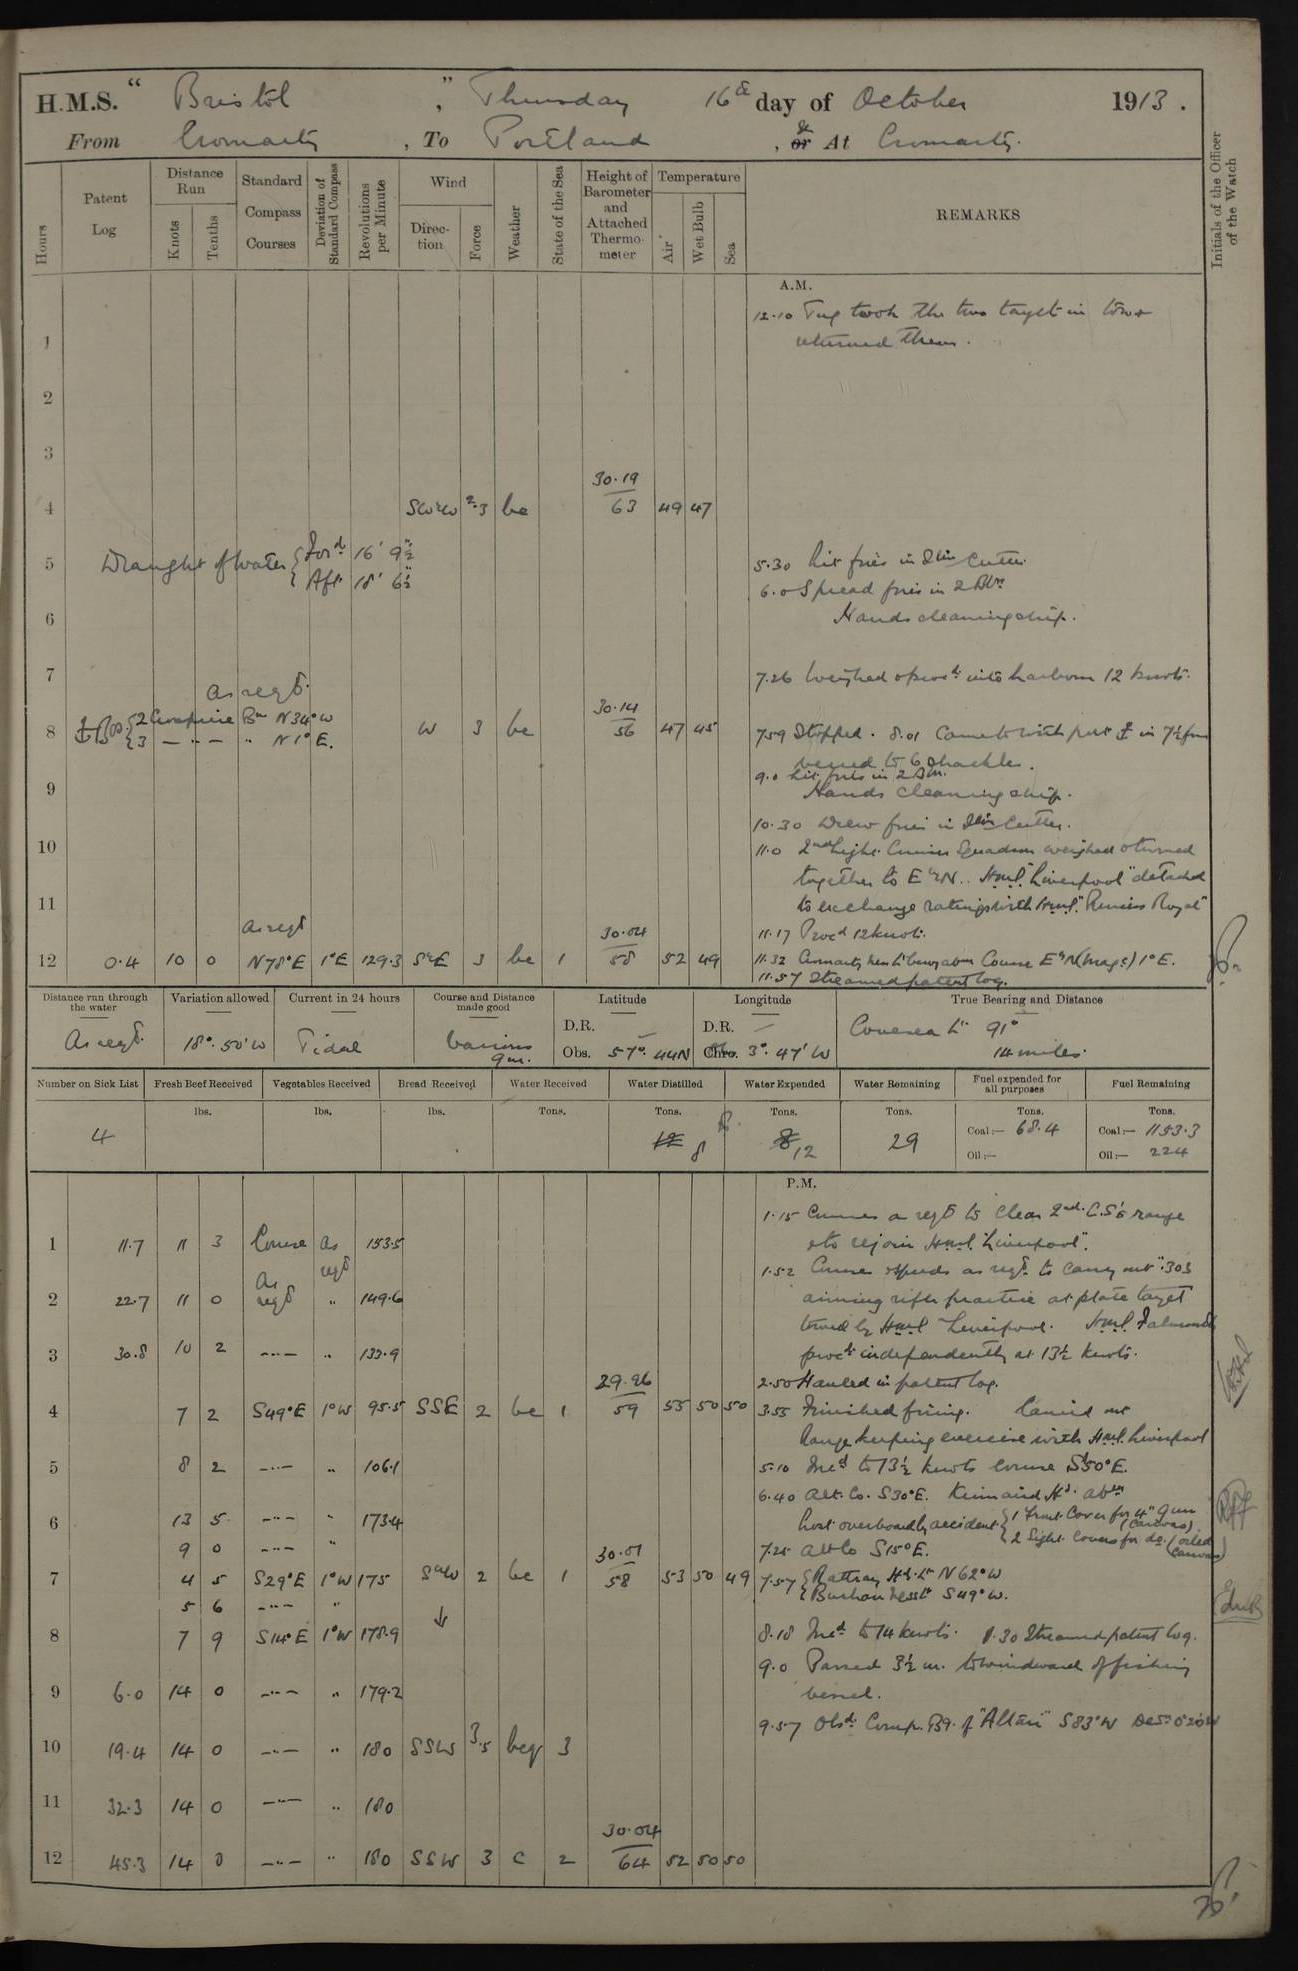 H.M.S. " Bristol ", Thursday 16th day of October 1913.
From Cromarty, To Portland, & or At Cromarty.
Hours
Patent Log
Distance Run
Knots
Tenths
Standard Compass Courses
Deviation of Standard Compass
Revolutions per Minute
Wind
Direction
Force
Weather
State of the Sea
Height of Barometer and Attached Thermometer
Temperature
Air
Wet Bulb
Sea
REMARKS
Initials of the Officer of the Watch
A.M.
12.10 Tug took the two target in tow &
1
returned them.
2
3
30.19
4 SW'W 2.3 bc 63 49 47
5 Draught of Water { Ford 16' 9½" 5.30 Lit fires in Stm Cutter.
Aft. 18' 6½" 6.0 Spread fires in 2 Blrs
6 Hands cleaning ship.
7 7.26 Weighed & procd into harbour 12 knots.
As reqd.
30.14
2 Bn N34°W
8 3 —"— " N1°E. W 3 bc 56 47 45 7.59 Stopped. 8.01 Came to with port in 7½ fms
veered to 6 shackles.
9.0 Lit fires in 2 Blrs.
9 Hands cleaning ship.
10.30 Drew fires in Stm Cutter.
10 11.0 2nd Light Cruiser Squadron weighed & turned
together to E'N.. H.M.S. "Liverpool" detached
11 to exchange ratings with H.M.S. "Princess Royal"
As reqd
30.04 11.17 Procd 12 knots.
12 0.4 10 0 N78°E 1°E 129.3 S'E 3 bc 1 58 52 49 11.32 Cromarty abm Course E'N (mag:) 1°E.
11.57 Streamed patent log.
Distance run through the water
As reqd.
Variation allowed
18°. 50'W
Current in 24 hours
Tidal
Course and Distance made good
Various
9m.
Latitude
D.R. —
Obs. 57°. 44N
Longitude
D.R. —
Chro. 3°. 47' W
True Bearing and Distance
Covesea Lt. 91°
14 miles.
Number on Sick List
4
Fresh Beef Received
lbs.
Vegetables Received
lbs.
Bread Received
lbs.
Water Received
Tons.
Water Distilled
Tons.
12 8
Water Expended
Tons.
8 12
Water Remaining
Tons.
29
Fuel expended for all purposes
Tons.
Coal:— 68.4
Oil:—
Fuel Remaining
Tons.
Coal:— 1153.3
Oil:— 224
P.M.
1.15 Courses as reqd to clear 2nd C.S's range
1 11.7 11 3 Course As reqd 153.5 & to rejoin H.M.S. "Liverpool".
1.52 Course & speeds as reqd to carry out ".303
2 22.7 11 0 As reqd " 149.6 aiming rifle practice at plate target
towed by H.M.S. Liverpool. H.M.S. Falmouth
3 30.8 10 2 —"— " 133.9 procd independently at 13½ knots.
29.96 2.50 Hauled in patent log.
4 7 2 S49°E 1°W 95.5 SSE 2 bc 1 59 55 50 50 3.55 Finished firing. Carried out
Range keeping exercise with H.M.S. Liverpool
5 8 2 —"— " 106.1 5.10 Incd to 13½ knots course S50°E.
6.40 Alt. Co. S30°E. Kinnaird Hd. abm
6 13 5 —"— " 173.4 Lost overboard by accident { 1 Front Cover for 4" Gun (Canvas)
2 Sight Covers for do. (oiled canvas)
9 0 —"— " 30.01 7.25 Alt Co S15°E.
7 4 5 S29°E 1°W 175 S'W 2 bc 1 58 53 50 49 7.57 { Rattray Hd. Lt N62°W
Buchan Ness Lt S49°W.
5 6 —"— "
8 7 9 S14°E 1°W 178.9 8.18 Incd to 14 knots. 8.30 Streamed patent log.
9.0 Passed 3½ m. to windward of fishing
9 6.0 14 0 —"— " 179.2 vessel.
9.57 Obsd. Comp. Bg. of "Altair" S83°W Devn 0°20'W
10 19.4 14 0 —"— " 180 SSW 3.5 bcq 3
11 32.3 14 0 —"— " 180
30.04
12 45.3 14 0 —"— " 180 SSW 3 c 2 64 52 50 50